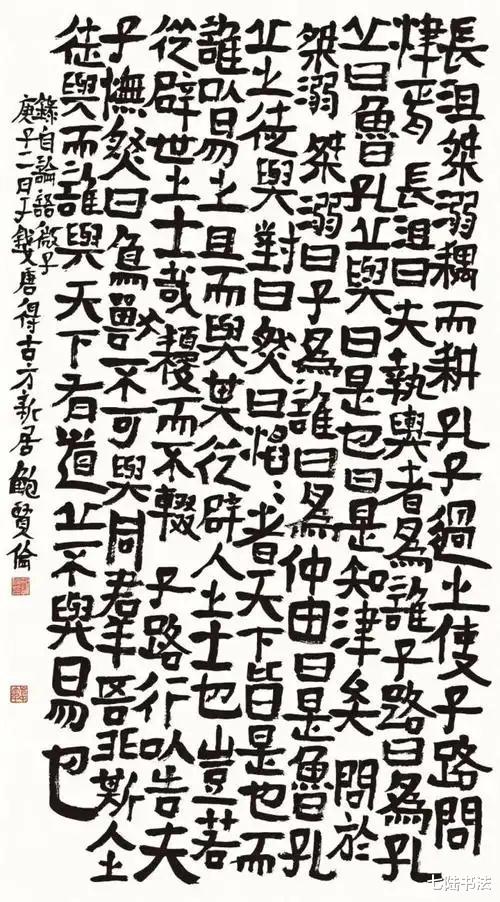 長沮桀溺耦而耕孔子過之使子路問
津焉長沮曰夫執輿者為誰子路曰為孔
丘曰魯孔丘與曰是也曰是知津矣問於
桀溺桀溺曰子為誰曰為仲由曰是魯孔
丘之徒與對曰然曰慆〻者天下皆是也而
誰以易之且而與其從辟人之士也豈若
從辟世之士哉耰而不輟子路行以告夫
子憮然曰鳥獸不可與同群吾非斯人之
徒與而誰與天下有道丘不與易也
錄自論語微子
庚子二月于錢唐得古方新居鮑賢倫
七陆书法